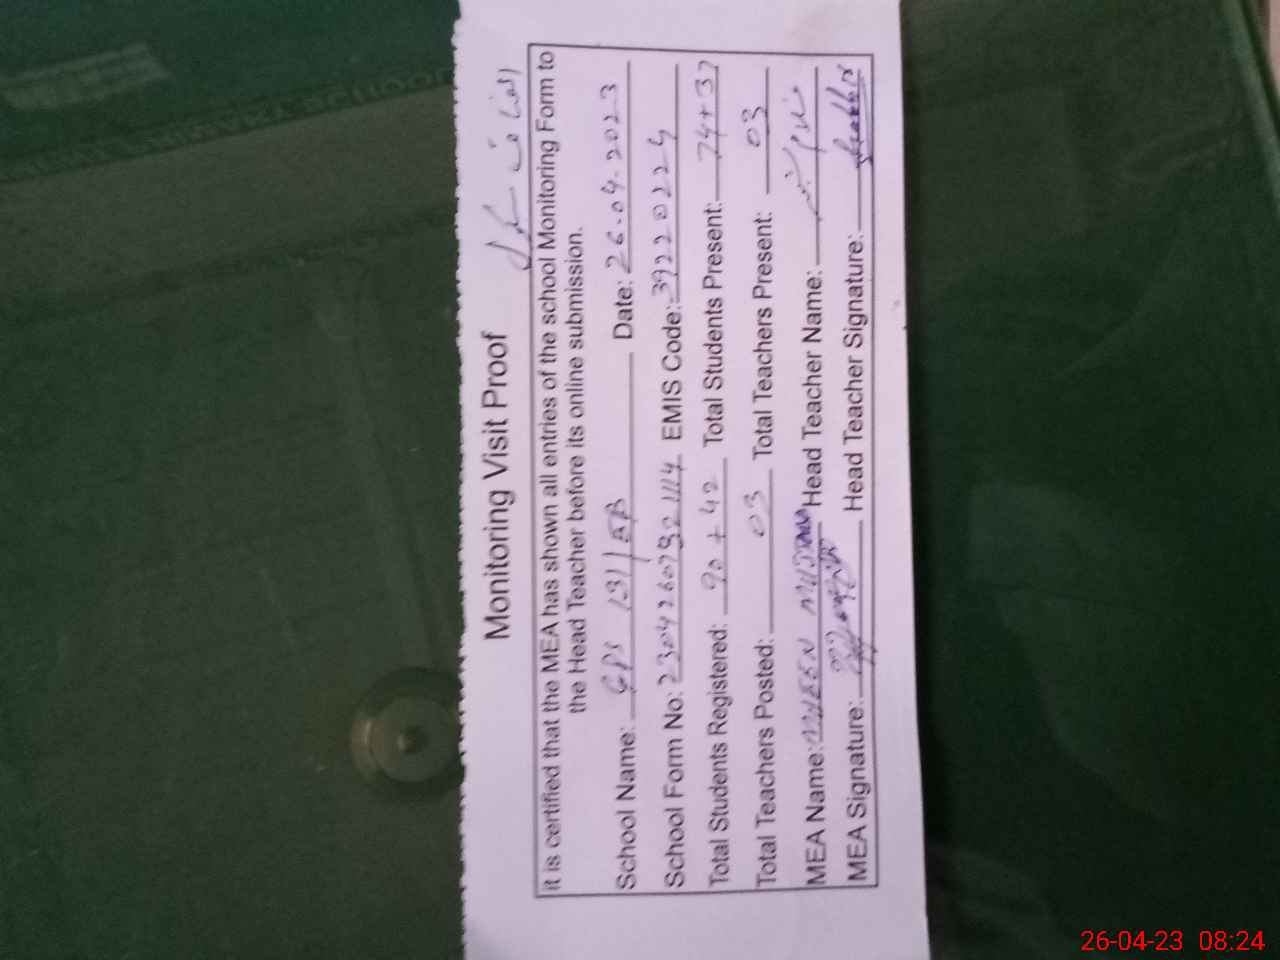 Monitoring Visit Proof
it is certified that the MEA has shown all entries of the school Monitoring Form to
the Head Teacher before its online submission.
School Name: GPS 131/EB Date: 26-04-2023
School Form No: EMIS Code: 39220224
Total Students Registered: 90 + 42 Total Students Present: 74+37
Total Teachers Posted: 03 Total Teachers Present: 03
MEA Name: Head Teacher Name:
MEA Signature: Head Teacher Signature:
26-04-23 08:24